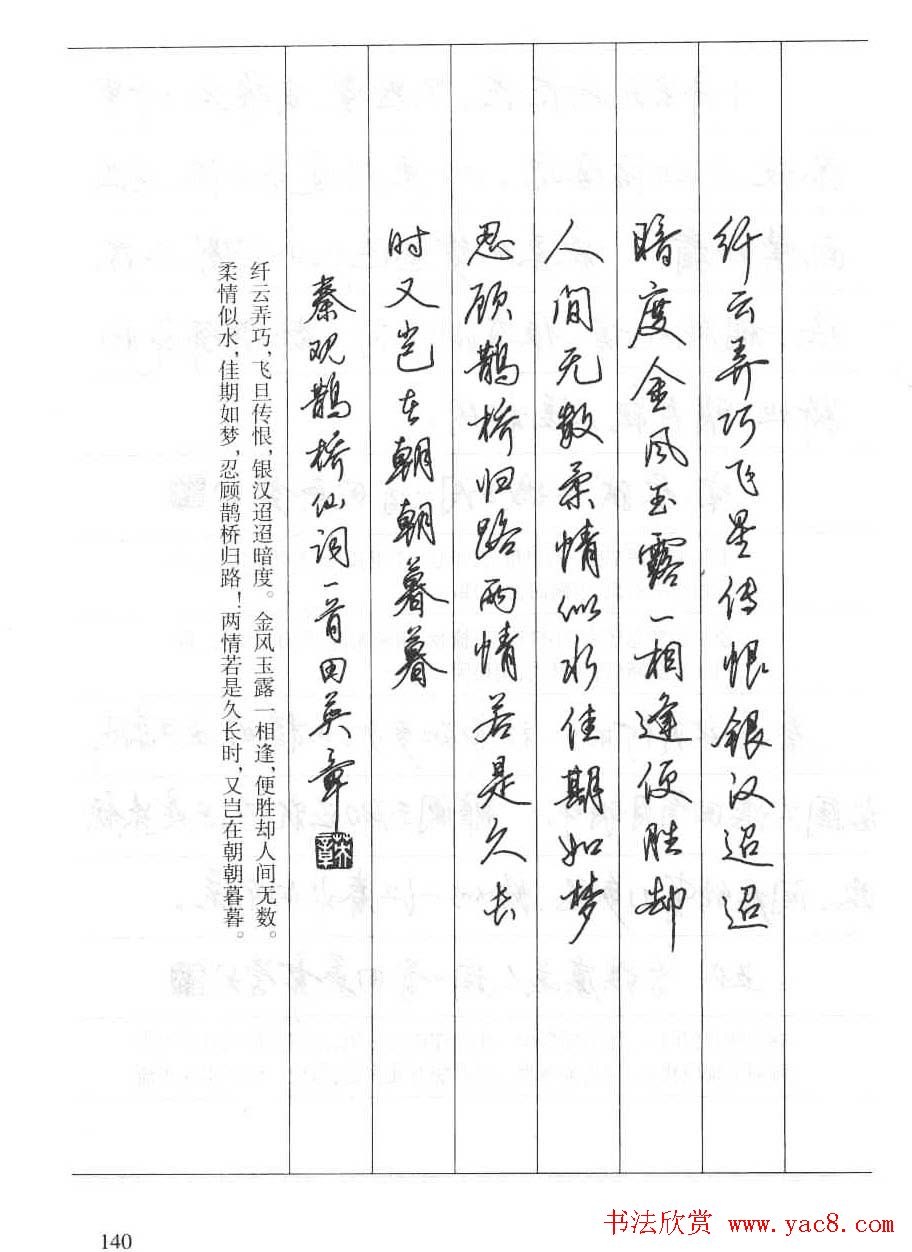 纤云弄巧飞星传恨银汉迢迢
暗度金风玉露一相逢便胜却
人间无数柔情似水佳期如梦
忍顾鹊桥归路两情若是久长
时又岂在朝朝暮暮
秦观鹊桥仙词一首田英章
英章
纤云弄巧，飞旦传恨，银汉迢迢暗度。金风玉露一相逢，便胜却人间无数。
柔情似水，佳期如梦，忍顾鹊桥归路！两情若是久长时，又岂在朝朝暮暮。
140
书法欣赏 www.yac8.com